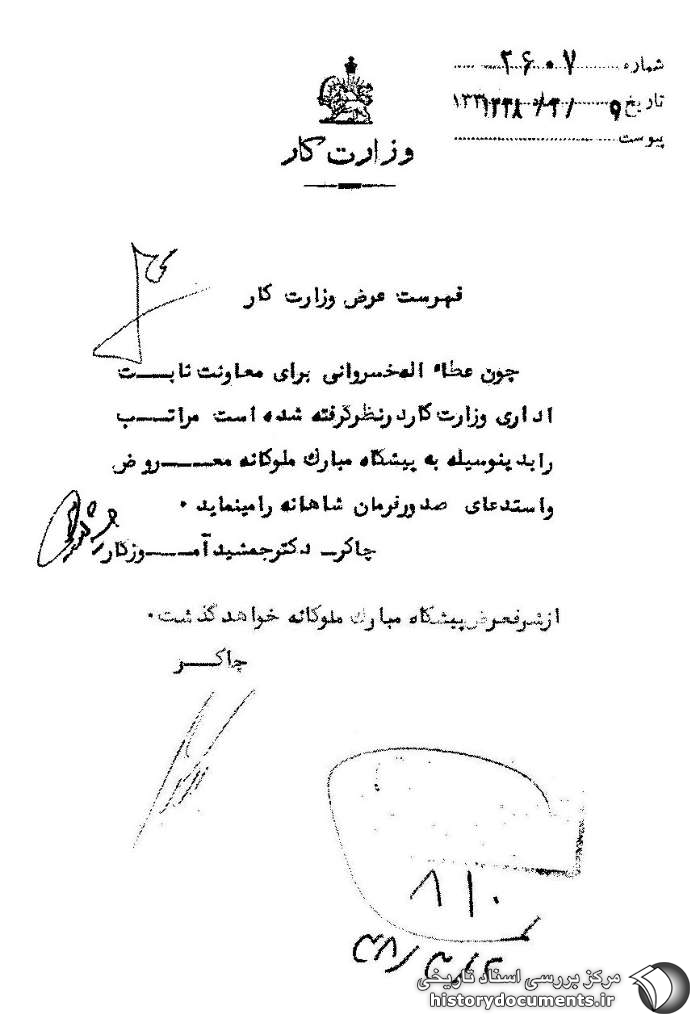 شماره ۲۶۰۷
تاریخ ۹ /۳/ ۱۳۳۸
پیوست
وزارت کار
فهرست عرض وزارت کار
چون عطاء اله خسروانی برای معاونت ثابت
اداری وزارت کار در نظر گرفته شده است مراتب
را بدینوسیله به پیشگاه مبارک ملوکانه معروض
و استدعای صدور فرمان شاهانه را مینماید .
چاکر دکتر جمشید آموزگار
از شرفعرض پیشگاه مبارک ملوکانه خواهد گذشت .
چاکر
مرکز بررسی اسناد تاریخی
historydocuments.ir